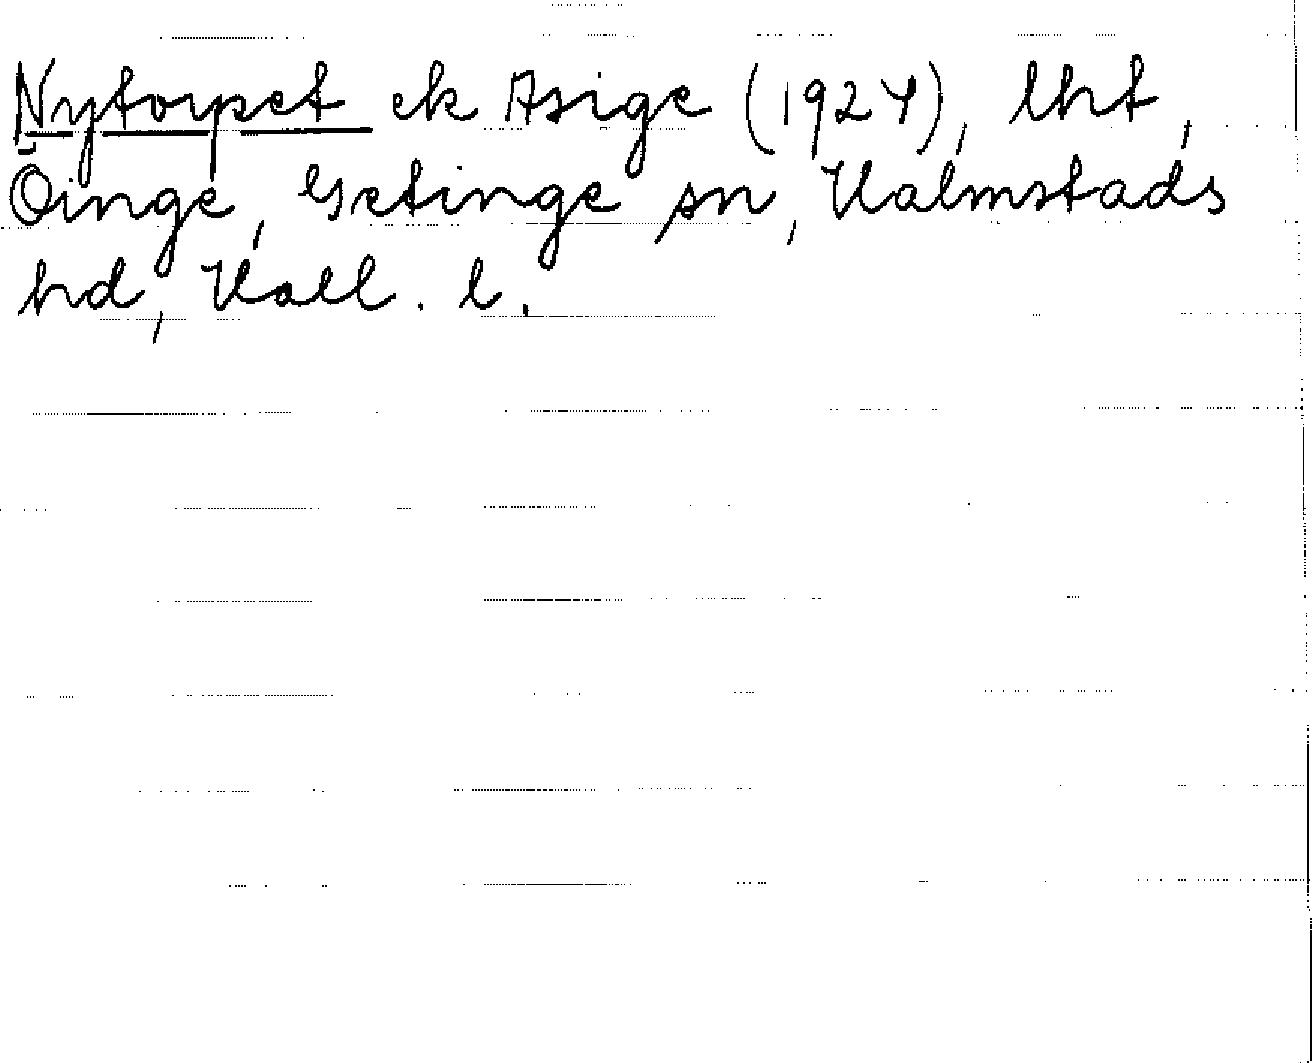 Nytorpet ek Asige (1924), lht,
Öinge, Getinge sn, Halmstads
hd, Hall. l.